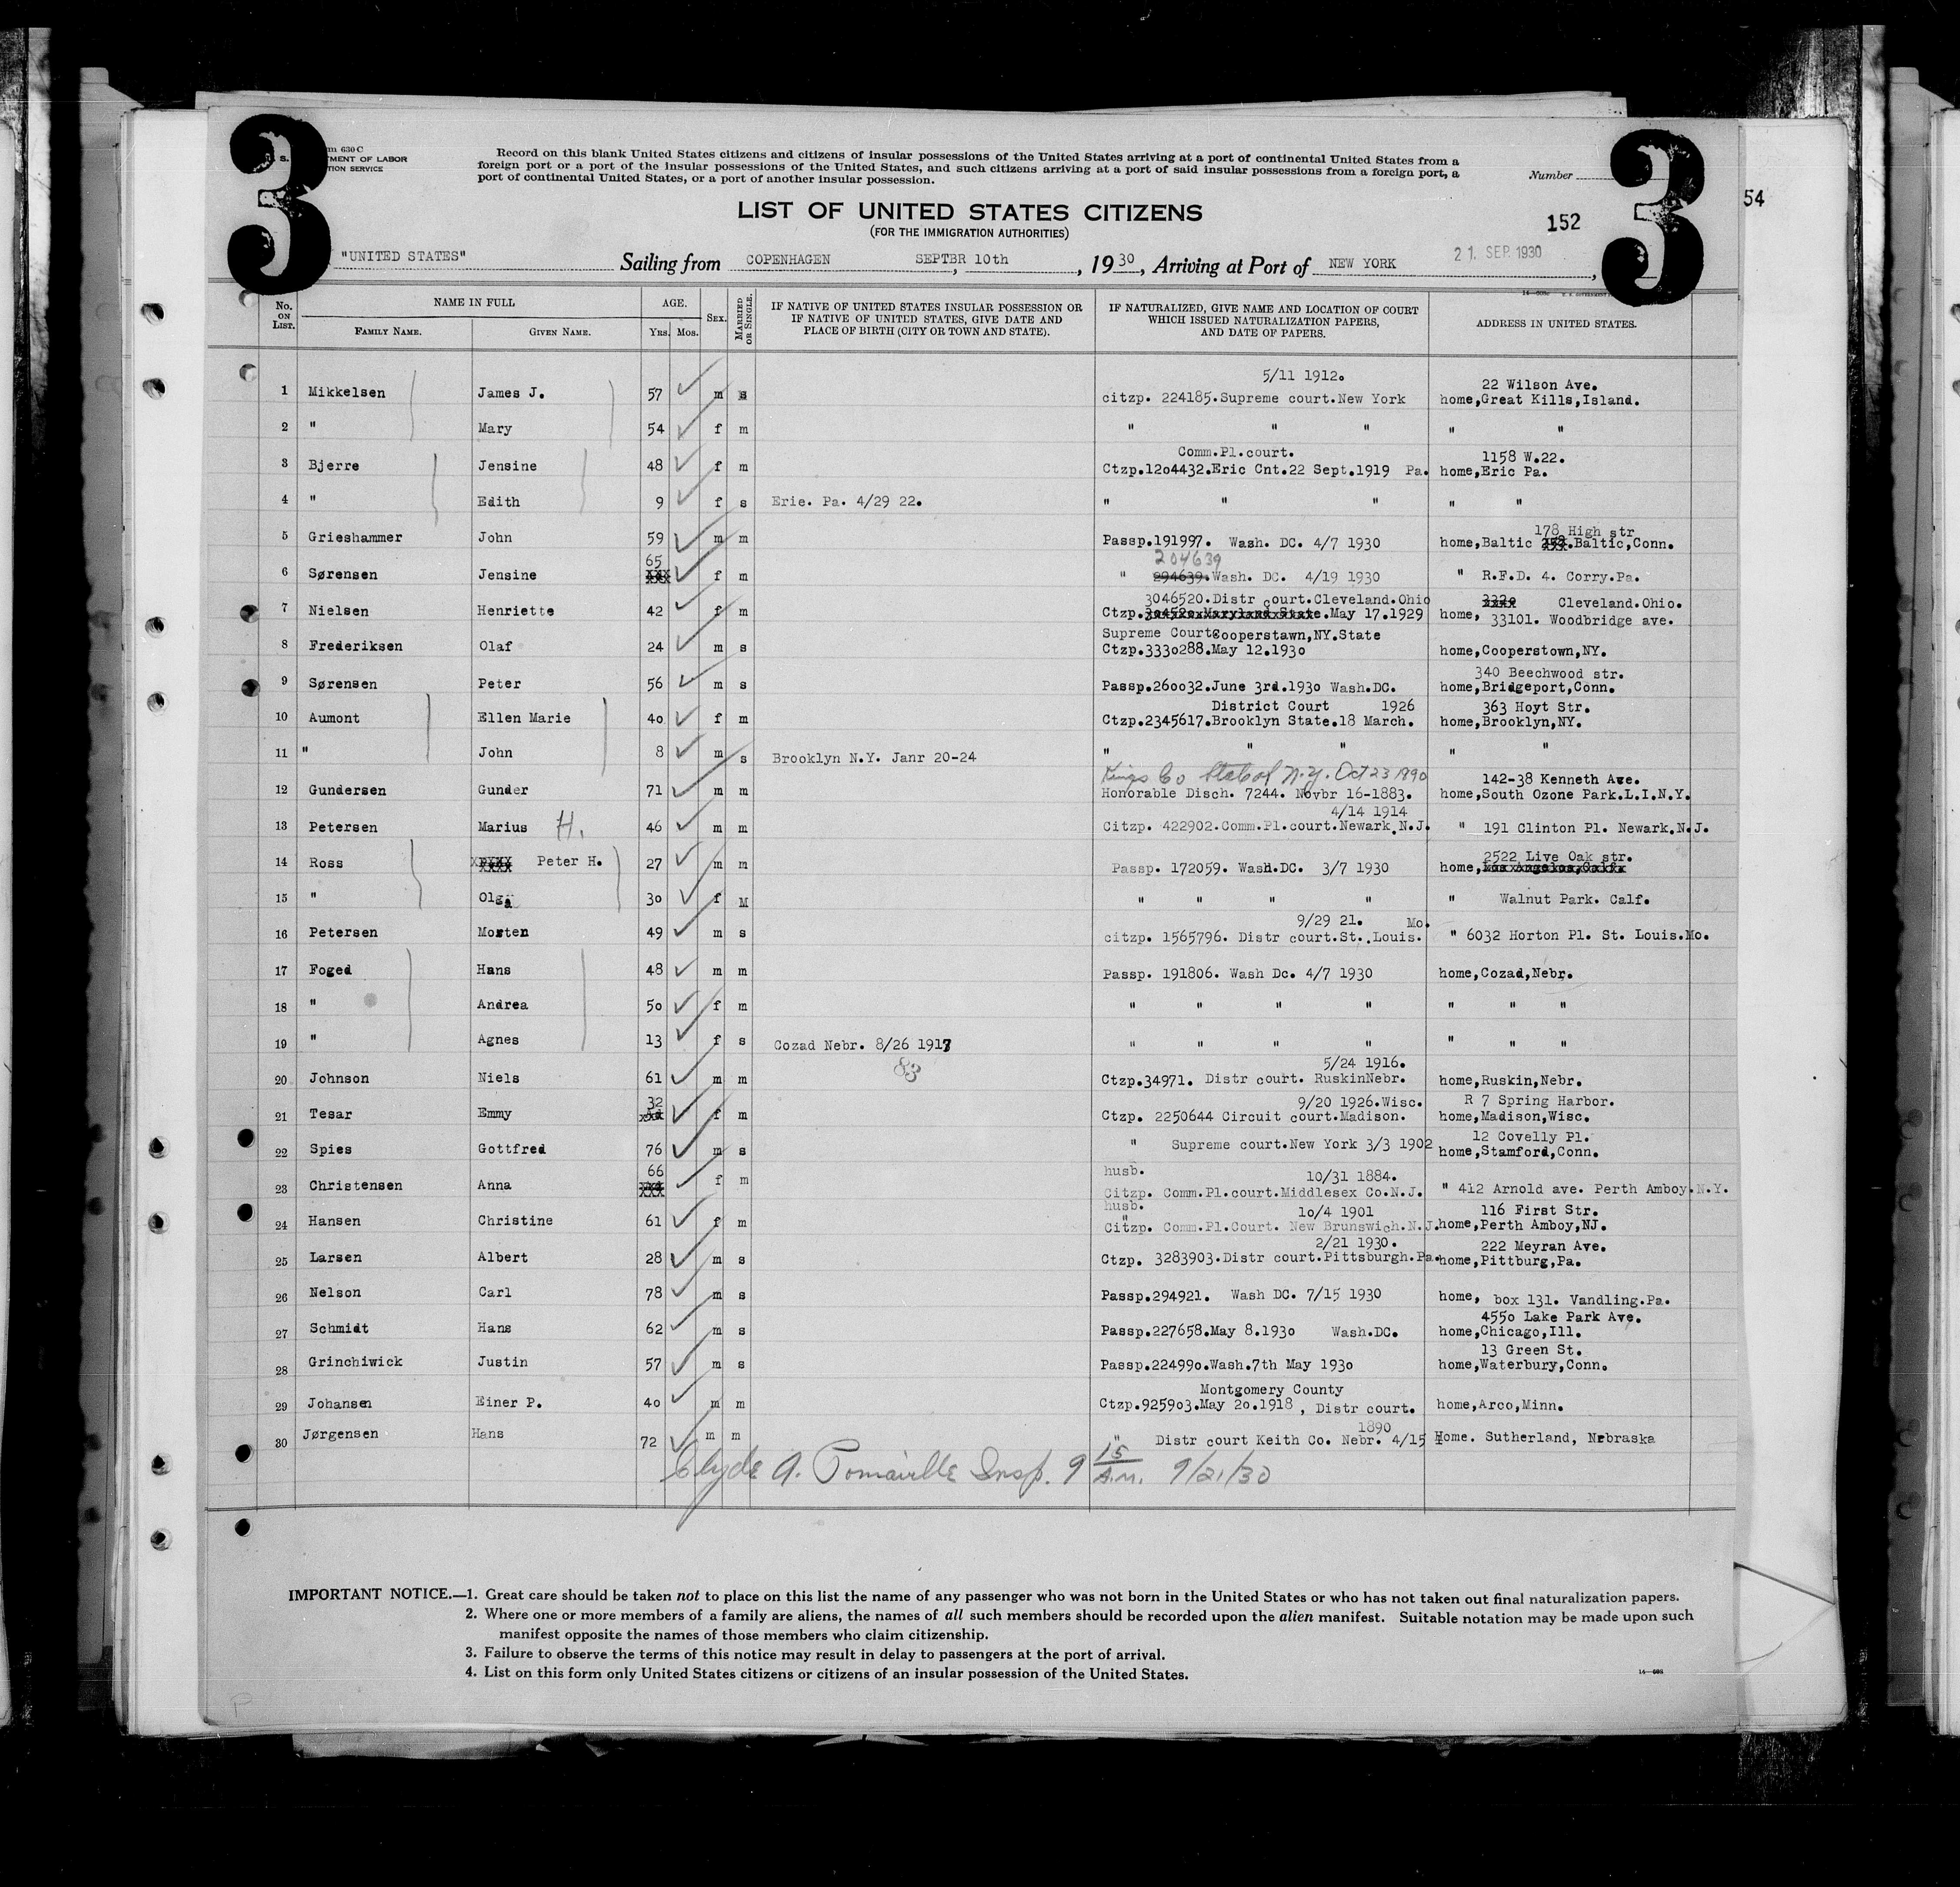 3
3
m 630 C
S.
TMENT OF LABOR
TION SERVICE
Record on this blank United States citizens and citizens of insular possessions of the United States arriving at a port of continental United States from a
foreign port or a port of the insular possessions of the United States, and such citizens arriving at a port of said insular possessions from a foreign port, a
port of continental United States, or a port of another insular possession.
Number
54
LIST OF UNITED STATES CITIZENS
(FOR THE IMMIGRATION AUTHORITIES)
152
"UNITED STATES" Sailing from COPENHAGEN SEPTBR 10th, 1930, Arriving at Port of NEW YORK 21. SEP. 1930,
No. ON LIST. NAME IN FULL FAMILY NAME. GIVEN NAME. AGE. YRS. MOS. SEX. MARRIED OR SINGLE. IF NATIVE OF UNITED STATES INSULAR POSSESSION OR IF NATIVE OF UNITED STATES, GIVE DATE AND PLACE OF BIRTH (CITY OR TOWN AND STATE). IF NATURALIZED, GIVE NAME AND LOCATION OF COURT WHICH ISSUED NATURALIZATION PAPERS, AND DATE OF PAPERS. ADDRESS IN UNITED STATES.
5/11 1912. 22 Wilson Ave.
1 Mikkelsen James J. 57 m s citzp. 224185.Supreme court.New York home,Great Kills,Island.
2 " Mary 54 f m " " " " "
Comm.Pl.court. 1158 W.22.
3 Bjerre Jensine 48 f m Ctzp.12o4432.Eric Cnt.22 Sept.1919 Pa. home,Eric Pa.
4 " Edith 9 f s Erie. Pa. 4/29 22. " " " " "
178 High str
5 Grieshammer John 59 m m Passp.191997. Wash. DC. 4/7 1930 home,Baltic .Baltic,Conn.
65 204639
6 Sørensen Jensine f m " 294639.Wash. DC. 4/19 1930 " R.F.D. 4. Corry.Pa.
3046520.Distr court.Cleveland.Ohio 332o Cleveland.Ohio.
7 Nielsen Henriette 42 f m Ctzp.3o452o.Maryland State.May 17.1929 home, 33101. Woodbridge ave.
Supreme Court Cooperstawn,NY.State
8 Frederiksen Olaf 24 m s Ctzp.333o288.May 12.193o home,Cooperstown,NY.
340 Beechwood str.
9 Sørensen Peter 56 m s Passp.26oo32.June 3rd.193o Wash.DC. home,Bridgeport,Conn.
District Court 1926 363 Hoyt Str.
10 Aumont Ellen Marie 4o f m Ctzp.2345617.Brooklyn State.18 March. home,Brooklyn,NY.
11 " John 8 m s Brooklyn N.Y. Janr 20-24 " " " " "
Kings Co State of N.Y. Oct 23 1890 142-38 Kenneth Ave.
12 Gundersen Gunder 71 m m Honorable Disch. 7244. Novbr 16-1883. home,South Ozone Park.L.I.N.Y.
4/14 1914
13 Petersen Marius H. 46 m m Citzp. 422902.Comm.Pl.court.Newark.N.J. " 191 Clinton Pl. Newark.N.J.
2522 Live Oak str.
14 Ross Peter H. 27 m m Passp. 172059. Wash.DC. 3/7 1930 home,Los Angelos,Calf.
15 " Olga 3o f M " " " " " Walnut Park. Calf.
9/29 21. Mo.
16 Petersen Morten 49 m s citzp. 1565796. Distr court.St. Louis. " 6032 Horton Pl. St. Louis.Mo.
17 Foged Hans 48 m m Passp. 191806. Wash Dc. 4/7 1930 home,Cozad,Nebr.
18 " Andrea 5o f m " " " " " " "
19 " Agnes 13 f s Cozad Nebr. 8/26 1917 " " " " " " "
83 5/24 1916.
20 Johnson Niels 61 m m Ctzp.34971. Distr court. RuskinNebr. home,Ruskin,Nebr.
32 9/20 1926.Wisc. R 7 Spring Harbor.
21 Tesar Emmy f m Ctzp. 2250644 Circuit court.Madison. home,Madison,Wisc.
12 Covelly Pl.
22 Spies Gottfred 76 m s " Supreme court.New York 3/3 1902 home,Stamford,Conn.
66 husb. 10/31 1884.
23 Christensen Anna f m Citzp. Comm.Pl.court.Middlesex Co.N.J. " 412 Arnold ave. Perth Amboy.N.Y.
husb. 1o/4 1901 116 First Str.
24 Hansen Christine 61 f m Citzp. Comm.Pl.Court. New Brunswich.N.J. home,Perth Amboy,NJ.
2/21 1930. 222 Meyran Ave.
25 Larsen Albert 28 m s Ctzp. 3283903.Distr court.Pittsburgh.Pa. home,Pittburg,Pa.
26 Nelson Carl 78 m s Passp.294921. Wash DC. 7/15 1930 home, box 131. Vandling.Pa.
455o Lake Park Ave.
27 Schmidt Hans 62 m s Passp.227658.May 8.193o Wash.DC. home,Chicago,Ill.
13 Green St.
28 Grinchiwick Justin 57 m s Passp.22499o.Wash.7th May 193o home,Waterbury,Conn.
Montgomery County
29 Johansen Einer P. 4o m m Ctzp.9259o3.May 2o.1918 , Distr court. home,Arco,Minn.
1890
30 Jørgensen Hans 72 m m " Distr court Keith Co. Nebr. 4/15 Home. Sutherland, Nebraska
Clyde A. Pomaiville Insp. 9 15 A.M. 9/21/30
IMPORTANT NOTICE.—1. Great care should be taken not to place on this list the name of any passenger who was not born in the United States or who has not taken out final naturalization papers.
2. Where one or more members of a family are aliens, the names of all such members should be recorded upon the alien manifest. Suitable notation may be made upon such
manifest opposite the names of those members who claim citizenship.
3. Failure to observe the terms of this notice may result in delay to passengers at the port of arrival.
4. List on this form only United States citizens or citizens of an insular possession of the United States.
14—608